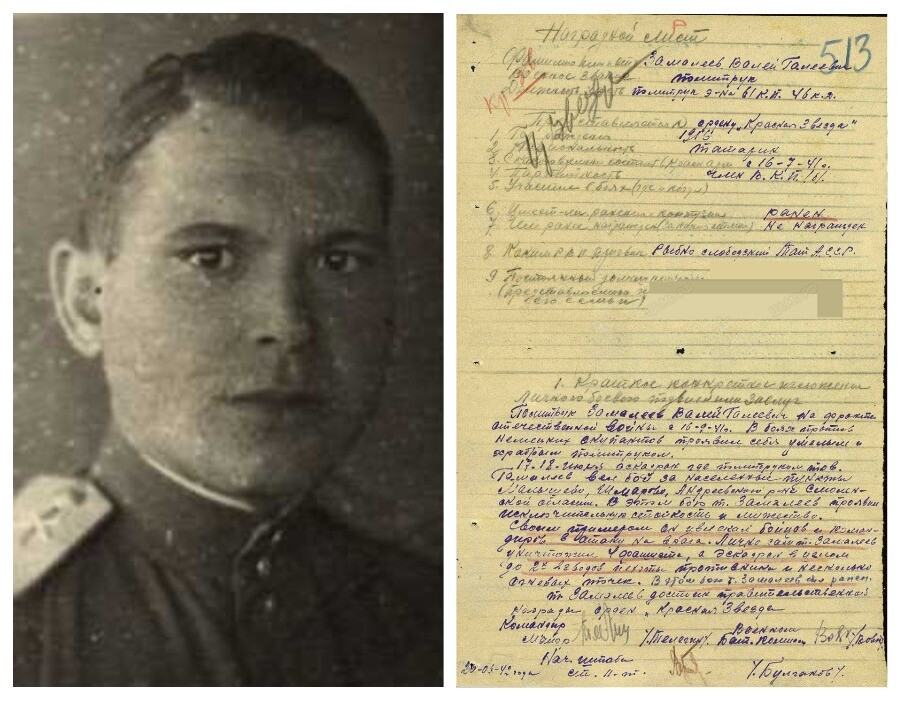 Наградной лист
513
Фамилия имя и отч. Замалеев Валей Галеевич
Воинское звание политрук
политрук э-на 61 К.П. 46 к.д.
Представляется к ордену „Красная Звезда"
1. Год рождения 1916
2. Национальность татарин
3. с 16-7-41г.
4. Партийность член В.К.П./б/.
5. Участие в боях (где и когда)
6. Имеет ли ранения и контузии ранен
7. Чем ранее награжден не награжден
8. Каким Р.В.К. призван Рыбно слободский Тат. А.С.С.Р.
9. Постоянный домашний
(представляемого к
его семьи)
1. Краткое конкретное изложение
личного боевого подвига или заслуг
Политрук Замалеев Валей Галеевич на фронте
отечественной войны с 16-9-41г. В боях против
немецких окупантов проявил себя умелым и
храбрым политруком.
17-18 июня эскадрон где политруком тов.
Замалеев вел бой за населенные пункты
Малышево, Шмарово, Андреевского р-на Смолен-
ской области. В этом бою т. Замалеев проявил
исключительную стойкость и мужество.
Своим примером он увлекал бойцов и коман-
диров в атаку на врага. Лично сам т. Замалеев
уничтожил 4 фашиста, а эскадрон в целом
до 2х взводов пехоты противника и несколько
огневых точек. В этом бою т. Замалеев был ранен.
т. Замалеев достоин правительственной
награды орден „Красная Звезда
Командир Военком
Майор Бат. комиссар
Нач. штаба
ст. л-т. /Булгаков/.